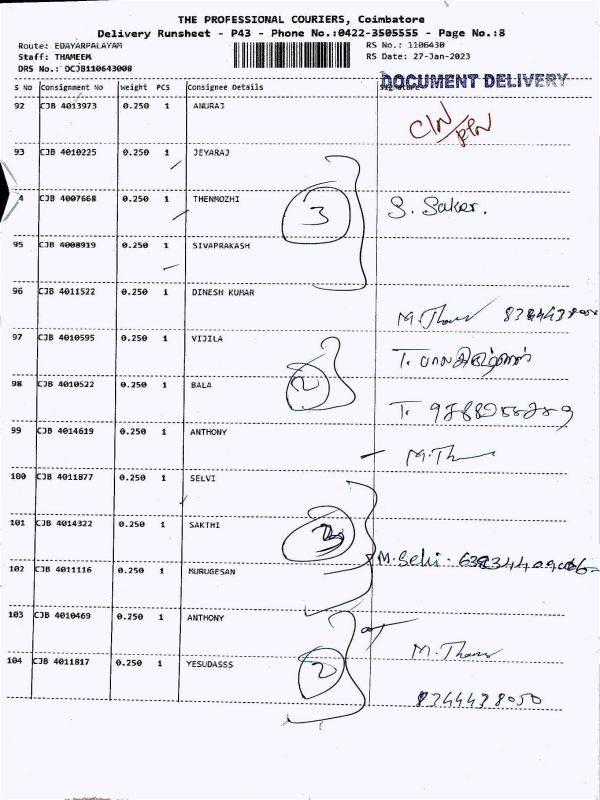 THE PROFESSIONAL COURIERS, Coimbatore
Delivery Runsheet - P43 - Phone No.:0422-3505555 - Page No.:8
Route: EDAYARPALAYAM
RS No.: 1106430
Staff: THAMEEM
RS Date: 27-Jan-2023
DRS No.: DCJB110643008
DOCUMENT DELIVERY
S No Consignment No Weight PCS Consignee Details
92 CJB 4013973 0.250 1 ANURAJ
93 CJB 4010225 0.250 1 JEYARAJ
4 CJB 4007668 0.250 1 THENMOZHI 3 S. Saker.
95 CJB 4008919 0.250 1 SIVAPRAKASH
96 CJB 4011522 0.250 1 DINESH KUMAR
97 CJB 4010595 0.250 1 VIJILA
98 CJB 4010522 0.250 1 BALA 2
99 CJB 4014619 0.250 1 ANTHONY
100 CJB 4011877 0.250 1 SELVI
101 CJB 4014322 0.250 1 SAKTHI
102 CJB 4011116 0.250 1 MURUGESAN
103 CJB 4010469 0.250 1 ANTHONY
104 CJB 4011817 0.250 1 YESUDASSS 2
8344438050